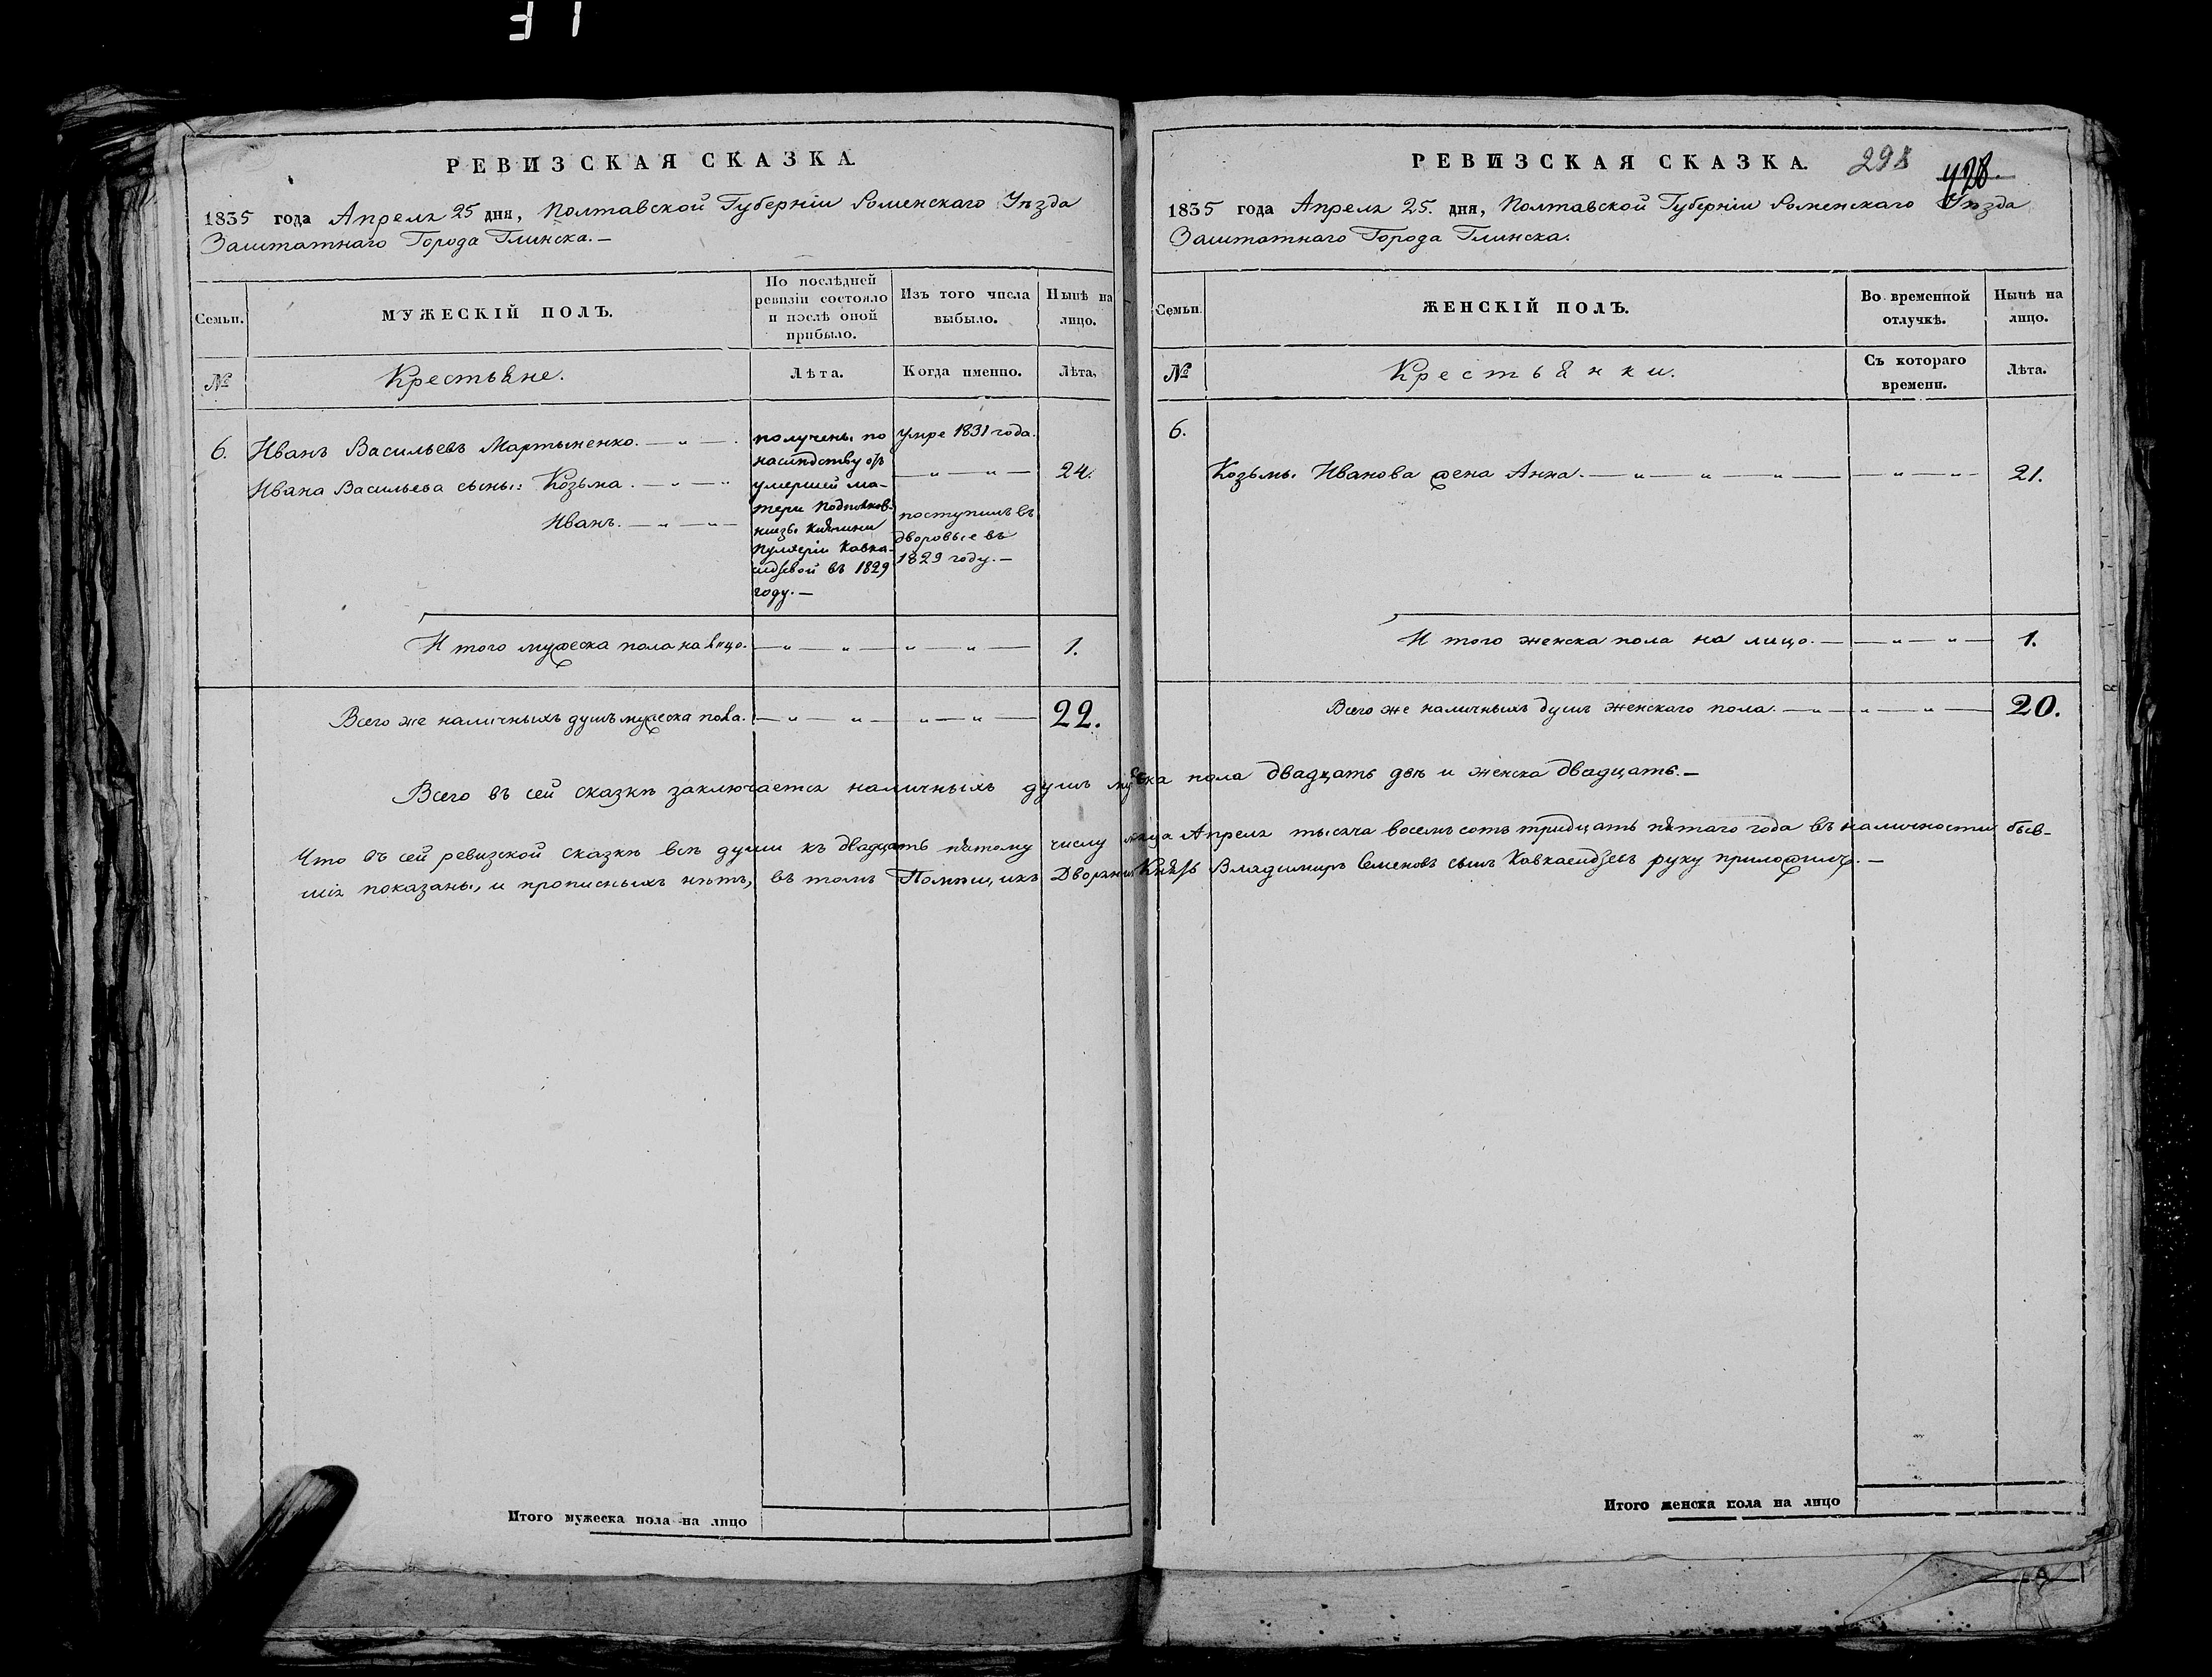 РЕВИЗСКАЯ СКАЗКА.
1835 года Апреля 25 дня, Полтавской Губерніи Роменскаго Уѣзда
Заштатнаго Города Глинска.—
Семьи.
МУЖЕСКІЙ ПОЛЪ.
По послѣдней ревизіи состояло и послѣ оной прибыло.
Изъ того числа выбыло.
Нынѣ на лицо.
№
Крестьяне.
Лѣта.
Когда именно.
Лѣта.
6. Иванъ Васильевъ Мартыненко.
Ивана Васильева сыны: Козьма.
Иванъ.
получены по
наслѣдству отъ
умершей ма-
тери
въ 1829
году.—
Умре 1831 года.
24.
поступилъ въ
дворовые въ
1829 году.—
И того мужеска пола на лицо. 1.
Всего же наличныхъ душъ мужеска пола. 22.
РЕВИЗСКАЯ СКАЗКА.
298
428.
1835 года Апреля 25. дня, Полтавской Губерніи Роменскаго Уѣзда
Заштатнаго Города Глинска.
Семьи.
ЖЕНСКІЙ ПОЛЪ.
Во временной отлучкѣ.
Нынѣ на лицо.
№
Крестьянки.
Съ котораго времени.
Лѣта.
6.
Козьмы Иванова жена Анна. 21.
И того женска пола на лицо. 1.
Всего же наличныхъ душъ женскаго пола. 20.
Всего въ сей сказкѣ заключается наличныхъ душъ муска пола двадцать двѣ и женска двадцать.—
Что въ сей ревизской сказкѣ всѣ души къ двадцать пятому числу мѣсяца Апреля тысяча восемъ сотъ тридцать пятаго года въ наличности быв-
шія показаны, и прописныхъ нѣтъ, въ томъ Помѣщикъ Дворянинъ Князь Владимиръ Семеновъ сынъ Кавкасидзевъ руку приложилъ.—
Итого мужеска пола на лицо
Итого женска пола на лицо